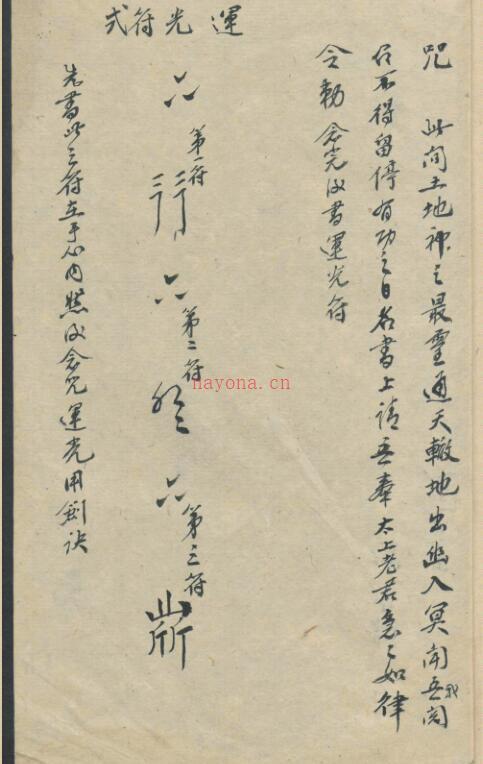 咒 此间土地神之最灵通天辙地出幽入冥闻吾
召不得留停有功之日名书上请吾奉太上老君急々如律
令勅 念完後书運光符
運光符式
第一符
第二符
第三符
先書此三符在手心内然後念咒運光用劍诀
hayona.cn